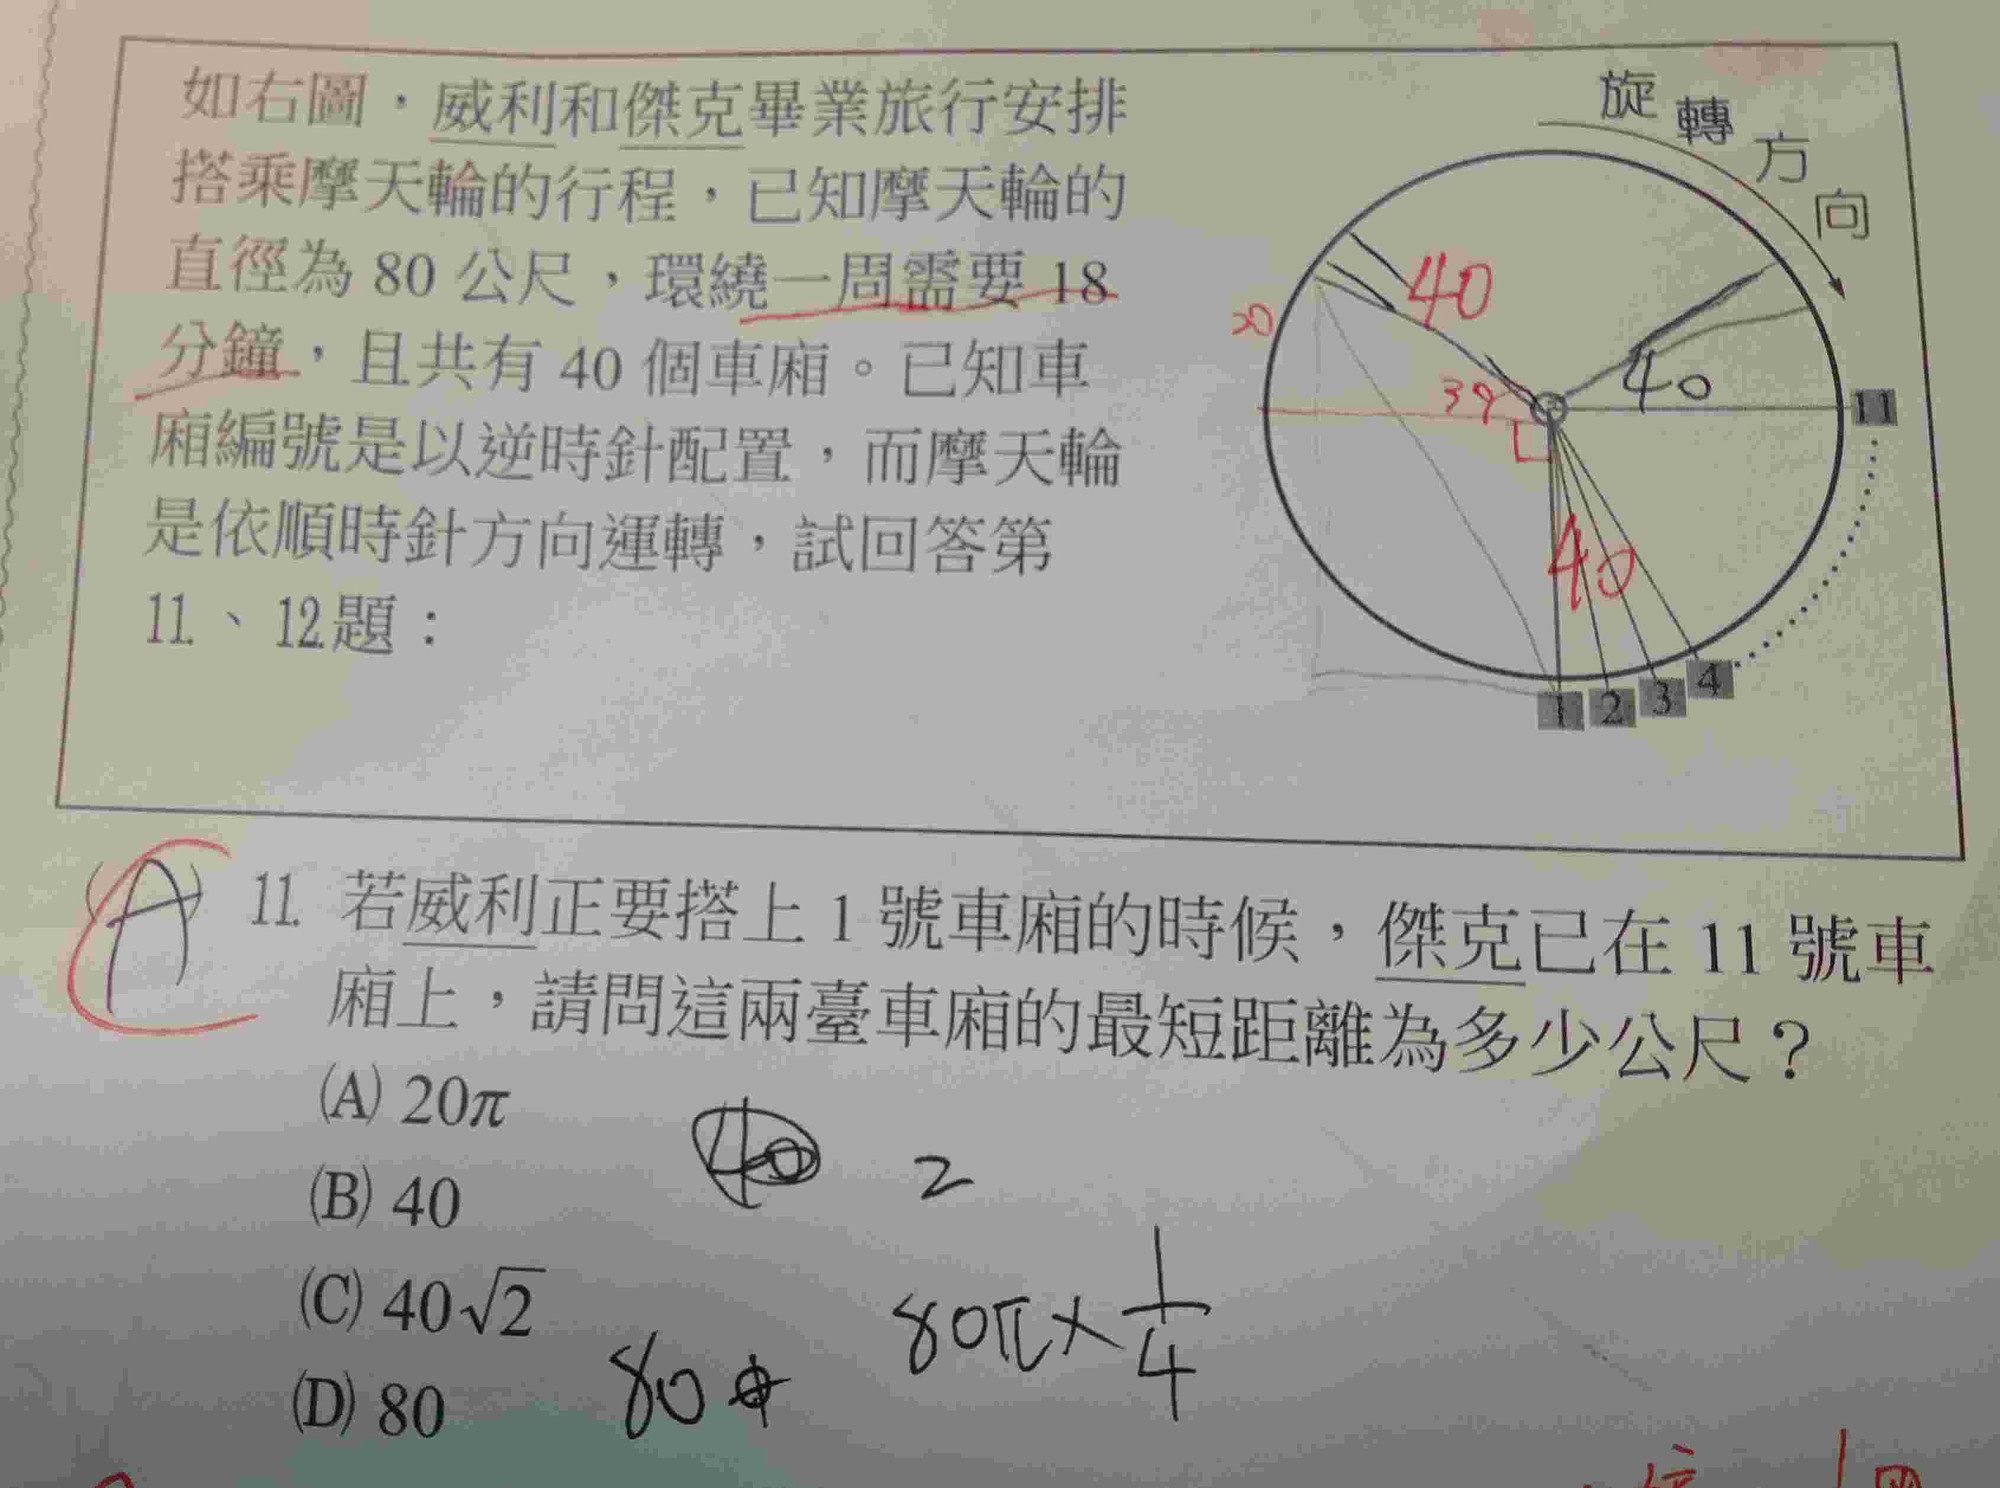 如右圖，威利和傑克畢業旅行安排
搭乘摩天輪的行程，已知摩天輪的
直徑為 80 公尺，環繞一周需要 18
分鐘，且共有 40 個車廂。已知車
廂編號是以逆時針配置，而摩天輪
是依順時針方向運轉，試回答第
11、12題：
旋轉方向
40
20
39
40
11
40
1 2 3 4
(A) 11. 若威利正要搭上 1 號車廂的時候，傑克已在 11 號車
廂上，請問這兩臺車廂的最短距離為多少公尺？
(A) 20π
(B) 40
(C) 40√2
(D) 80
40 2
80π × 1/4
80